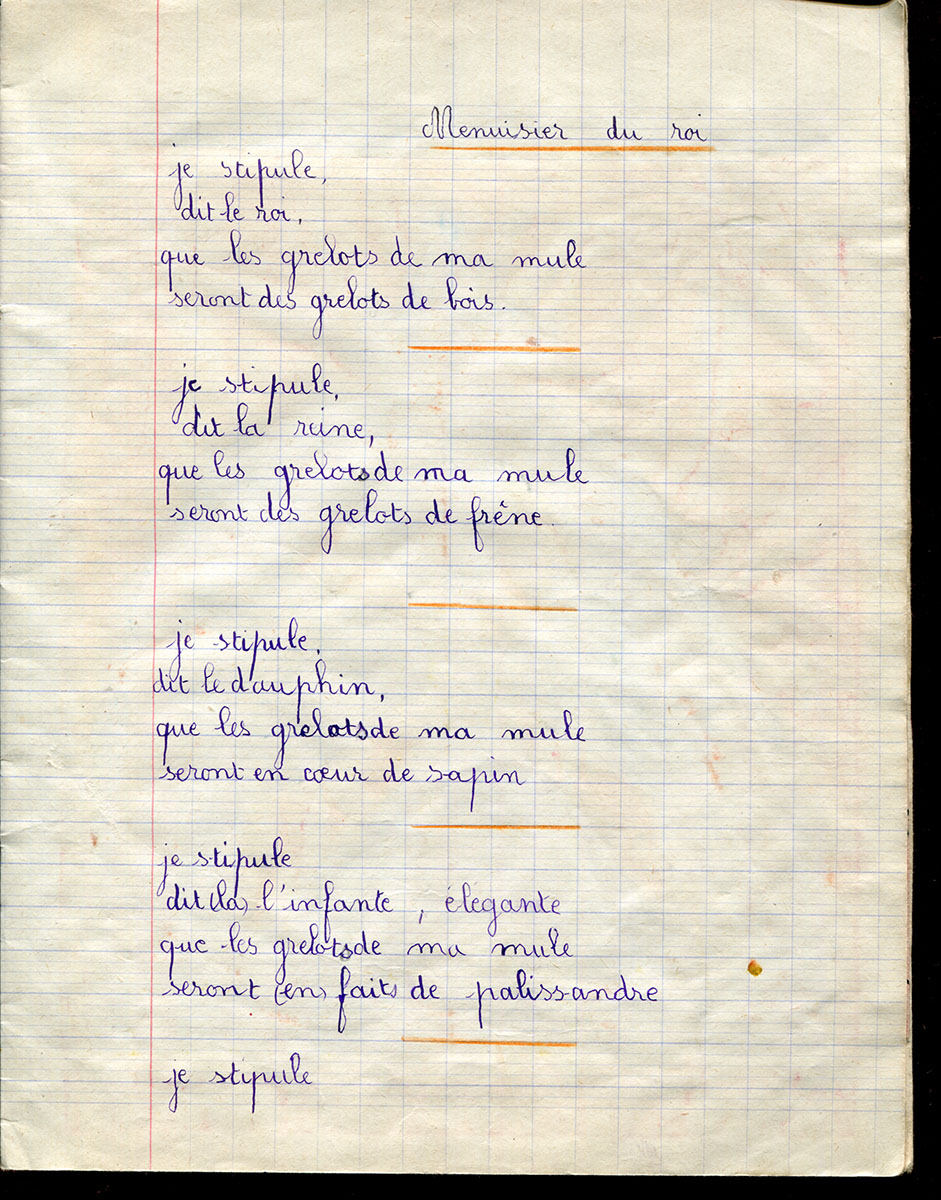 Menuisier du roi
je stipule,
dit le roi,
que les grelots de ma mule
seront des grelots de bois.
je stipule,
dit la reine,
que les grelots de ma mule
seront des grelots de frêne.
je stipule,
dit le dauphin,
que les grelots de ma mule
seront en cœur de sapin
je stipule
dit (la) l'infante, élégante
que les grelots de ma mule
seront (en) faits de palissandre
je stipule